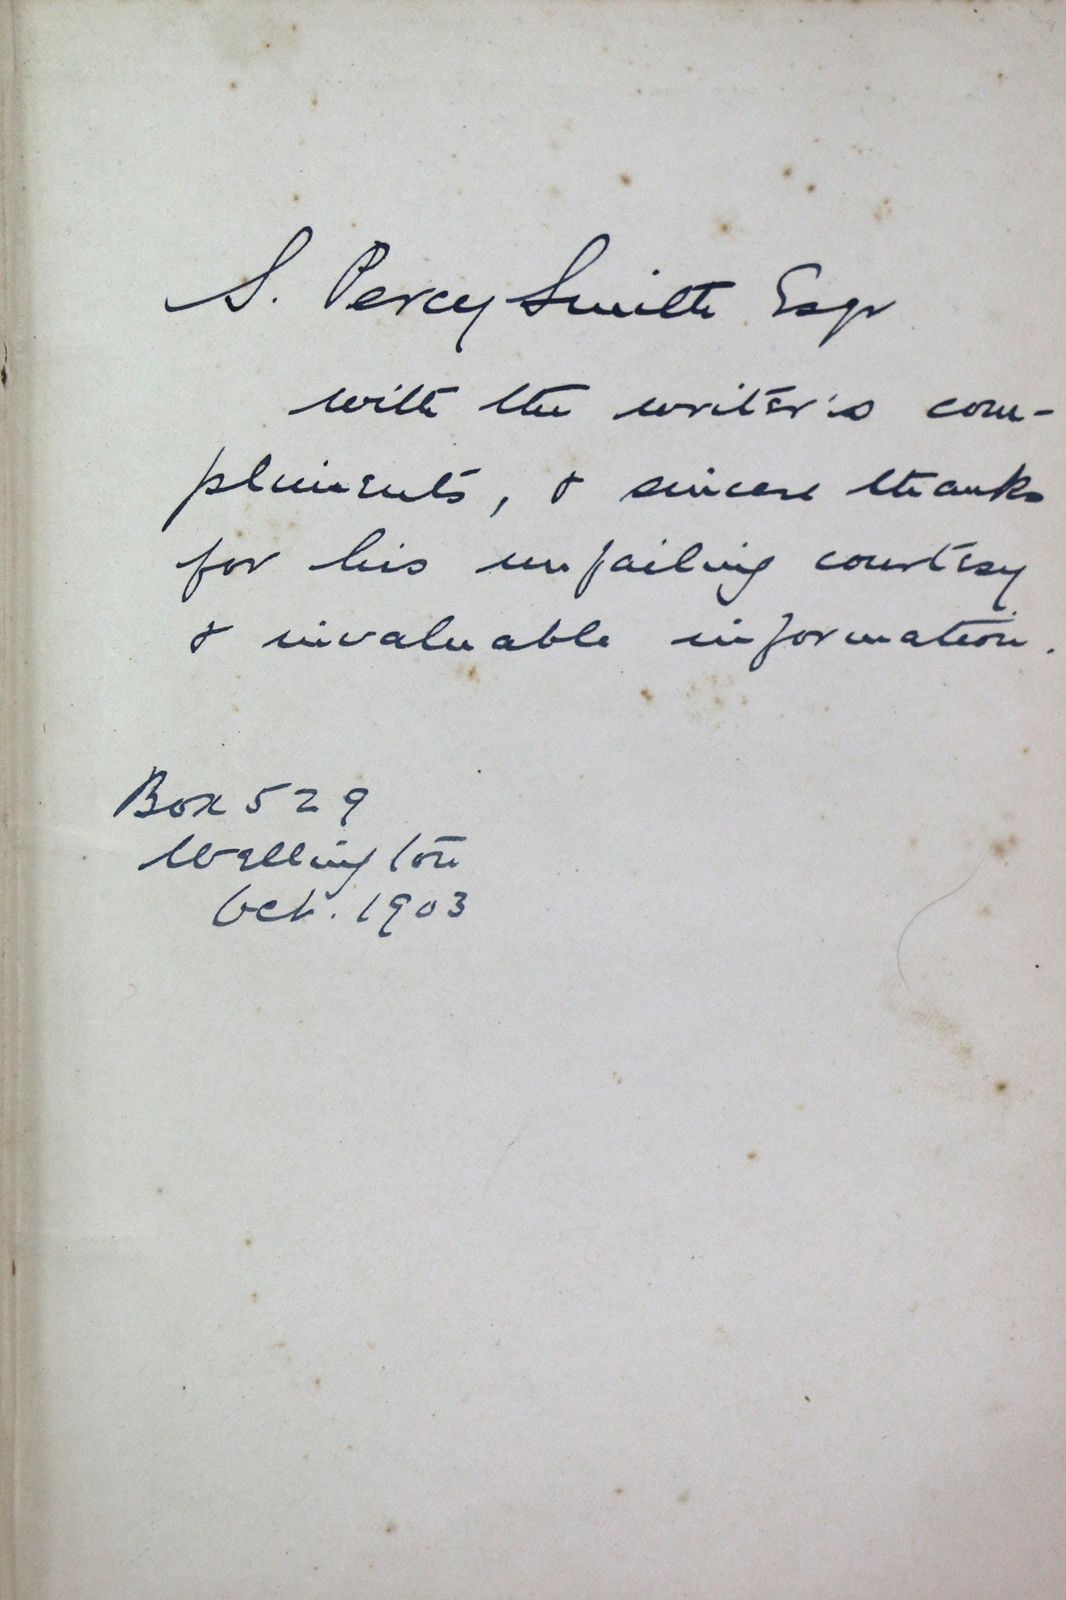 S. Percy Smith Esqr
with the writer's com-
pliments, & sincere thanks
for his unfailing courtesy
& invaluable information.
Box 529
Wellington
Oct. 1903